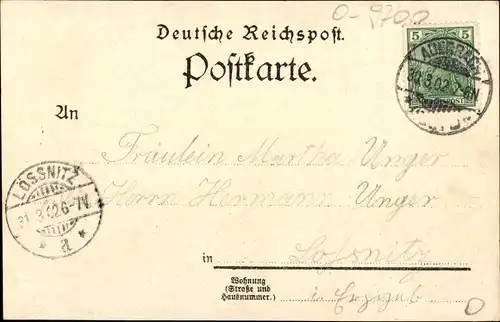 O-9700
Deutsche Reichspost.
Postkarte.
5 5
AUERBACH
30.3.02.
An
Fräulein Martha Unger
Herrn Hermann Unger
LÖSSNITZ
31.3.02.6-7V.
* a *
in Lössnitz
Wohnung
(Straße und
Hausnummer.)
i. Erzgeb